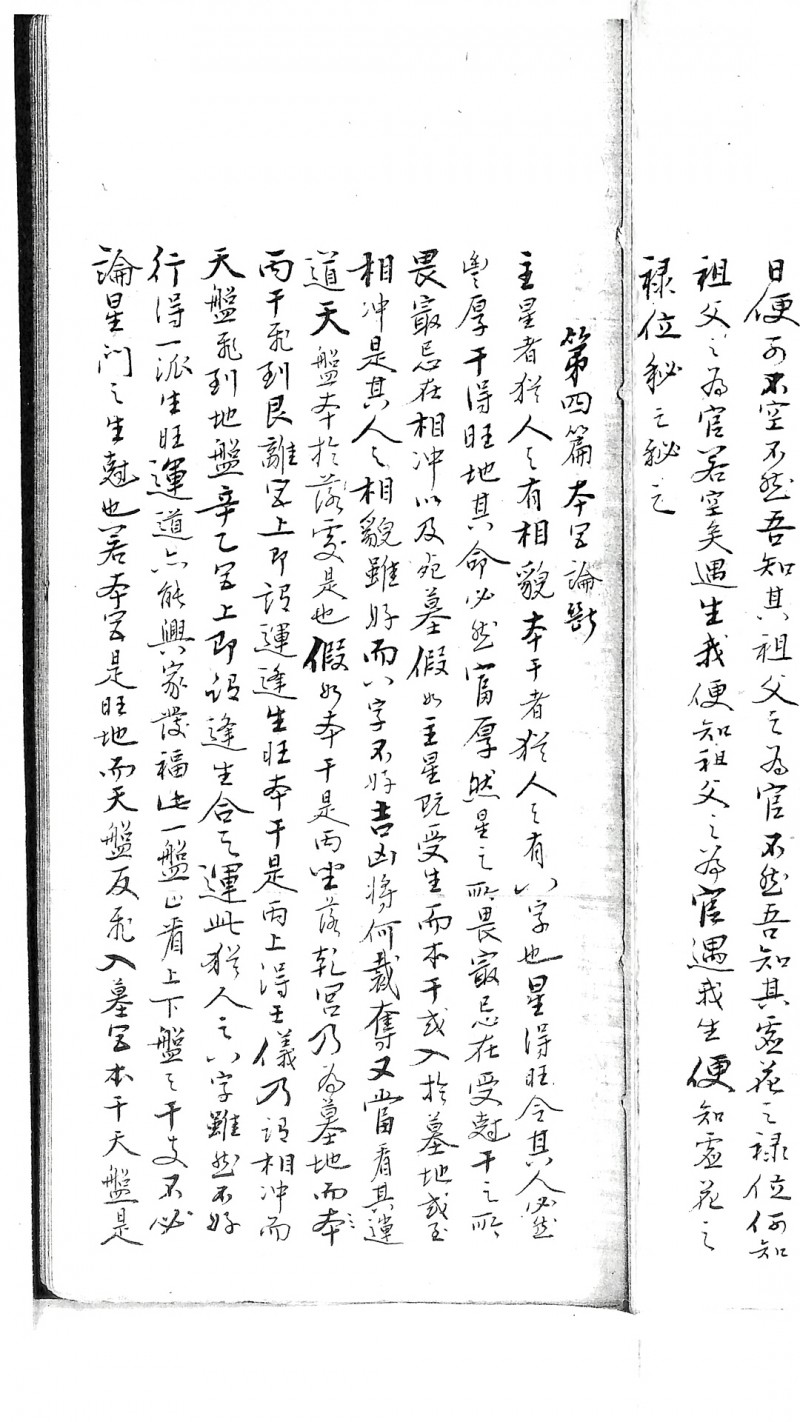 日便可不空不然吾知其祖父之為官不然吾知其虛花之祿位何知
祖父之為官若空矣遇生我便知祖父之為官遇我生便知虛花之
祿位秘之秘之
第四篇本宮論斷
主星者猶人之有相貌本干者猶人之有八字也星得旺令其人必然
豐厚干得旺地其命必然富厚然星之所畏最忌在受尅干之所
畏最忌在相冲以及死墓假如主星既受生而本干或入於墓地或至
相冲是其人之相貌雖好而八字不好吉凶將何裁奪又當看其運
道天盤本於落處是也假如本干是丙坐落乾宮乃為墓地而本
丙干飛到艮離宮上即謂運逢生旺本干是丙上得壬儀乃謂相冲而
天盤飛到地盤辛乙宮上即謂逢生合之運此猶人之八字雖然不好
行得一派生旺運道亦能興家發福此一盤正看上下盤之干支不必
論星門之生尅也若本宮是旺地而天盤反飛入墓宮本干天盤是